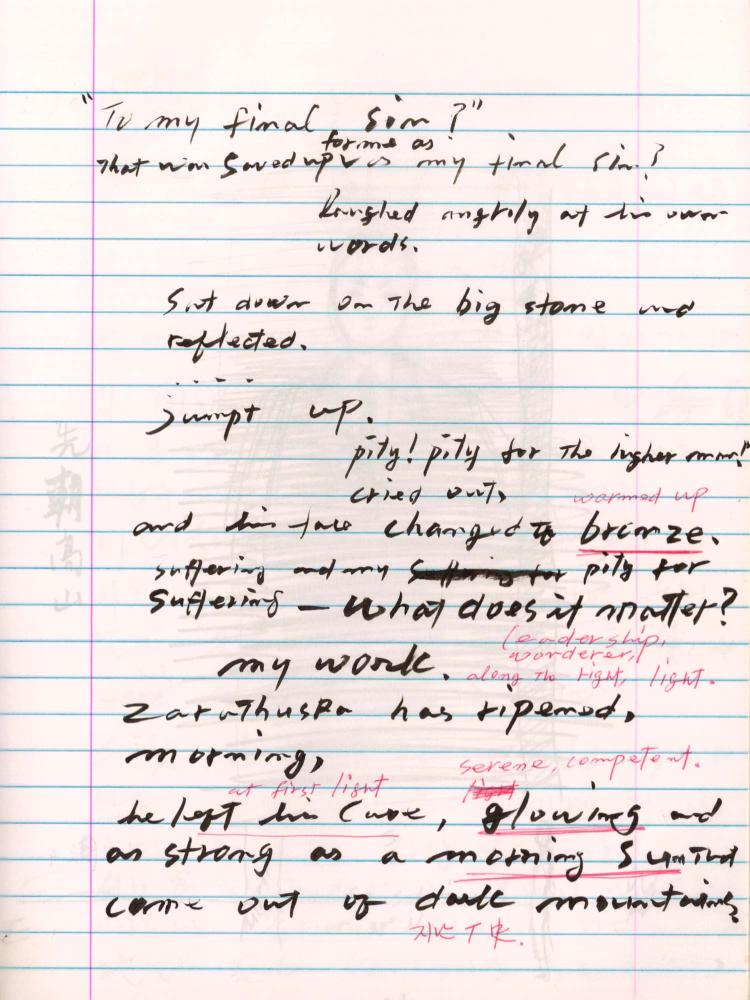 "To my final sin?"
for me as
That was saved up ✓ as my final sin?
Laughed angrily at his own
words.
Sat down on The big stone and
reflected.
.....
jumpt up.
pity! pity for The higher man!"
cried out,
warmed up
and his face changed to bronze.
suffering and my pity for
suffering — what does it matter?
leadership,
wonderer,
my work. along The right, light.
ZaraThusRa has ripened,
morning,
serene, competent.
at first light
he left his Cave, glowing and
as strong as a morning Sun That
come out of dark mountains.
先朝高山